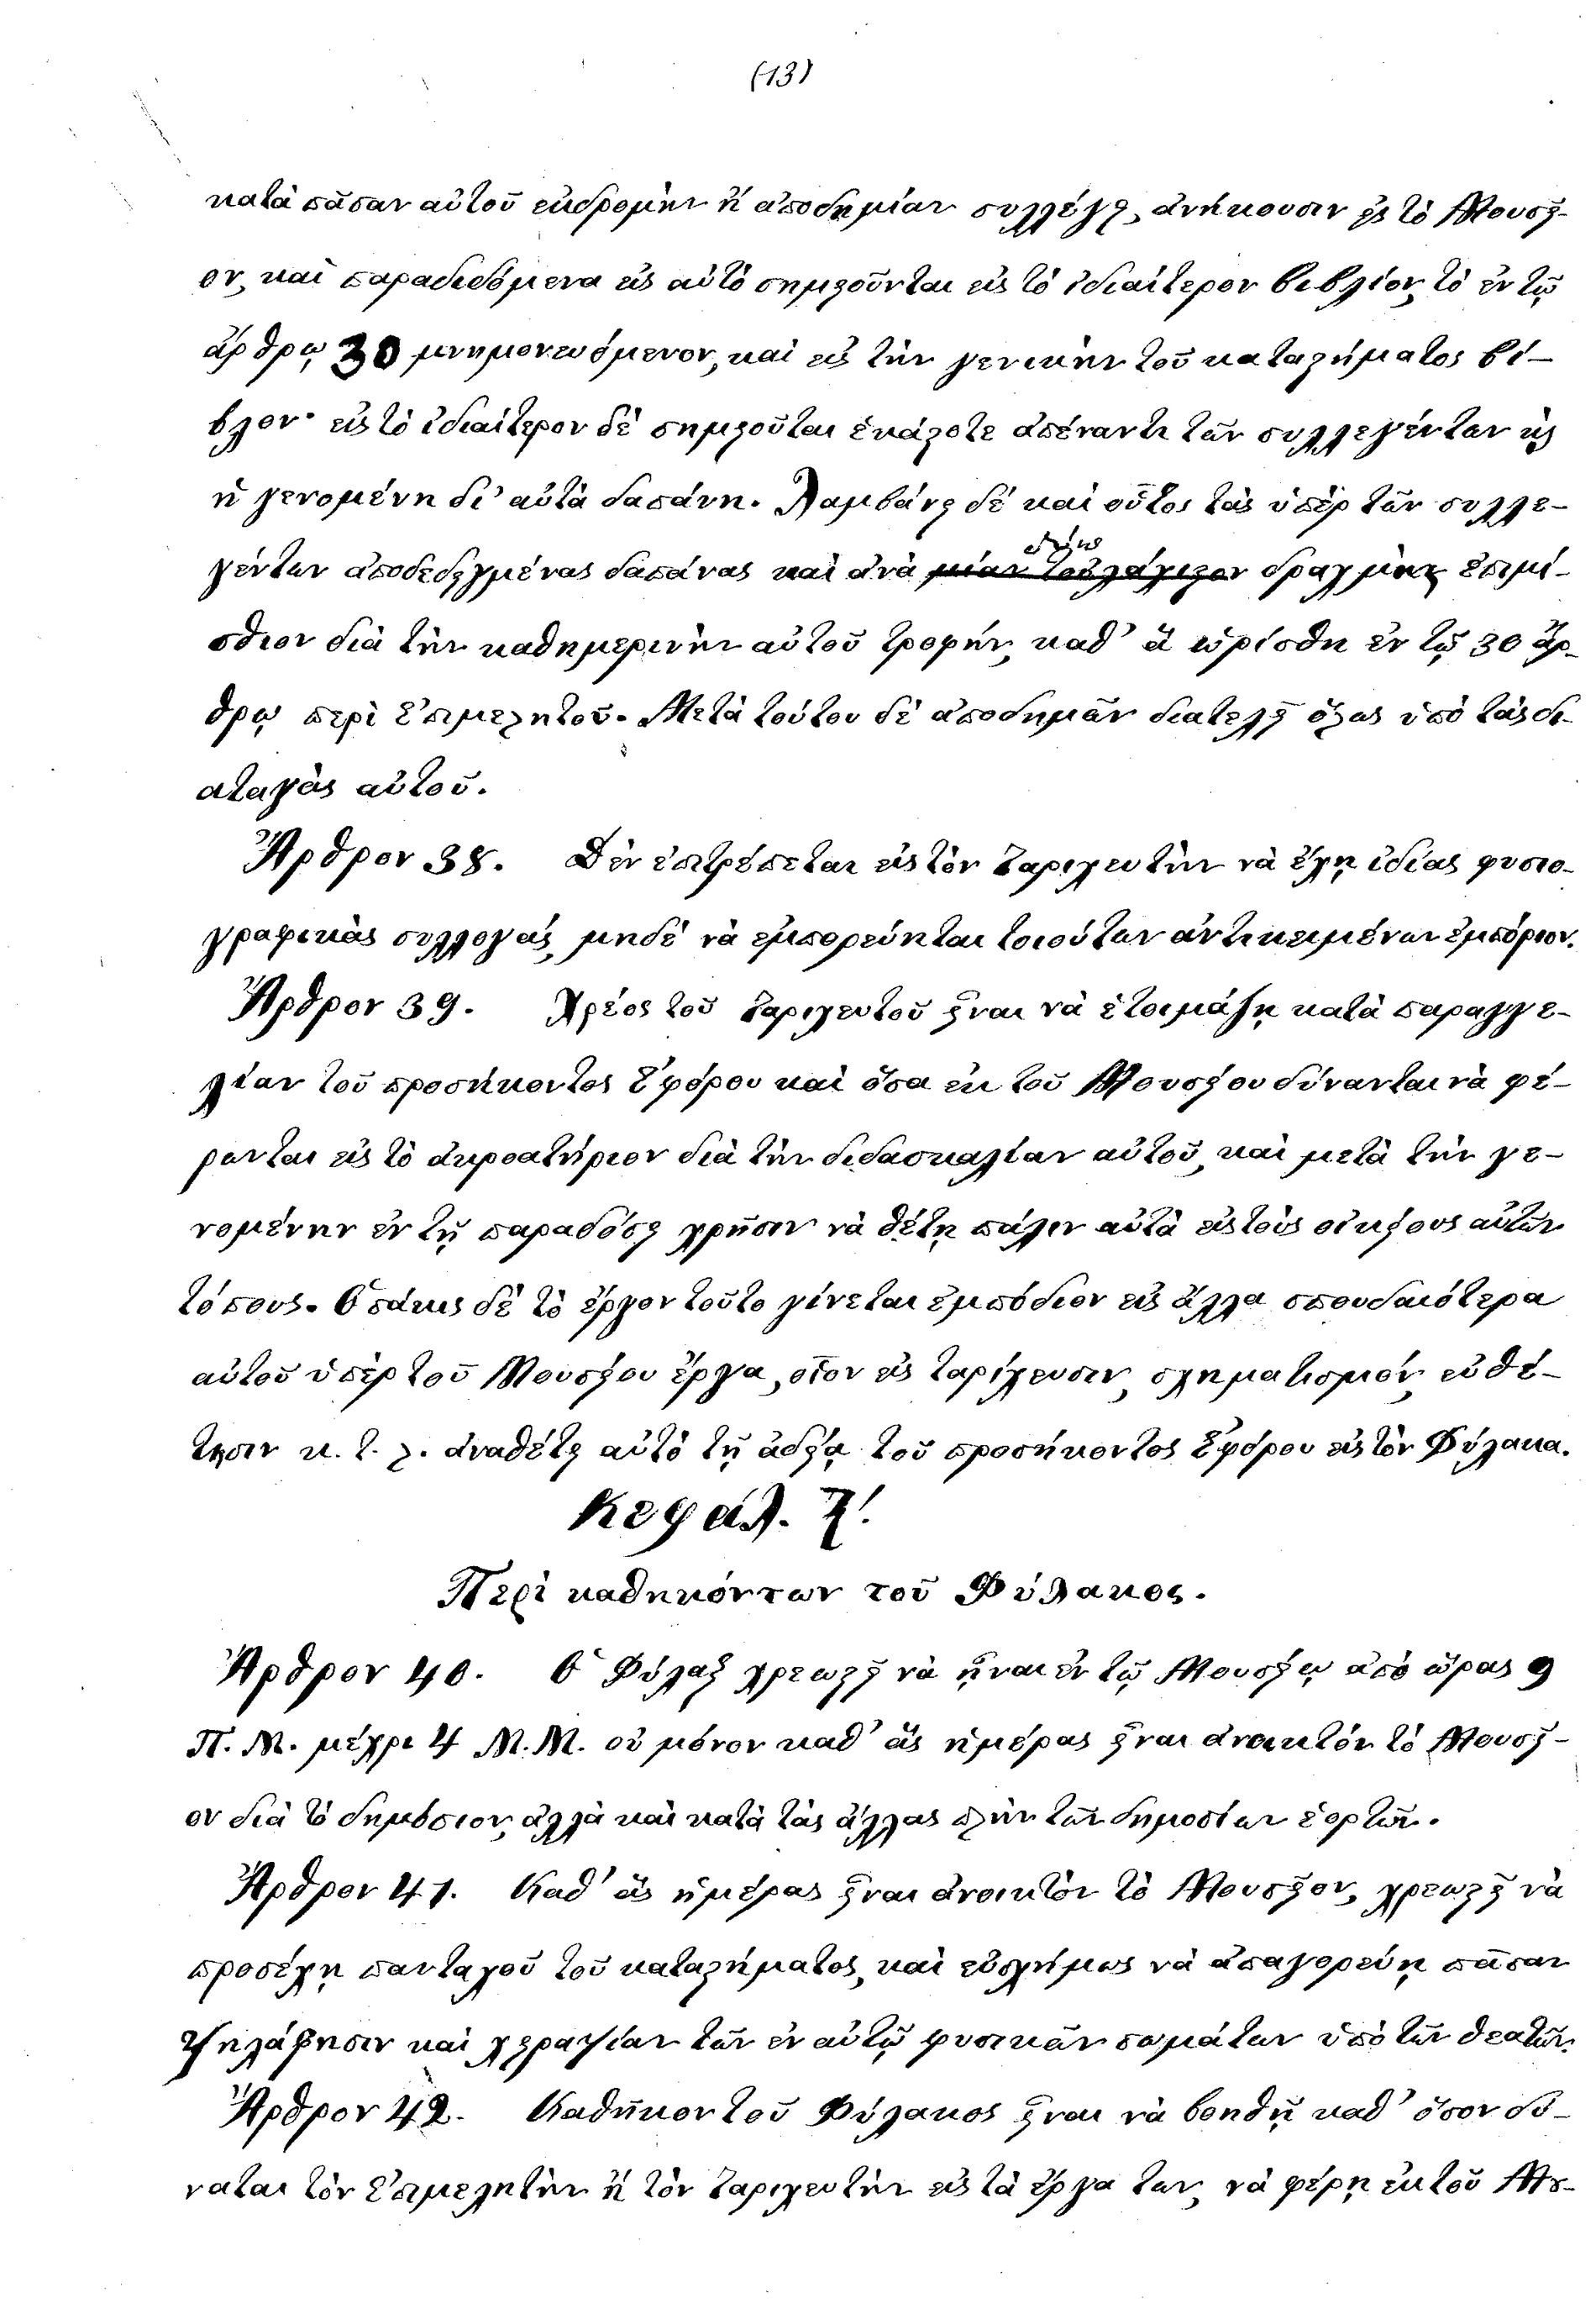 (13)
κατὰ πᾶσαν αὐτοῦ ἐκδρομὴν ἢ ἀποδημίαν συλλέγει, ἀνήκουσιν εἰς τὸ Μουσεῖ-
ον, καὶ παραδιδόμενα εἰς αὐτὸ σημειοῦνται εἰς τὸ ἰδιαίτερον βιβλίον, τὸ ἐν τῷ
ἄρθρῳ 30 μνημονευόμενον, καὶ εἰς τὴν γενικὴν τοῦ καταστήματος βί-
βλον· εἰς τὸ ἰδιαίτερον δὲ σημειοῦται ἑκάστοτε ἀπέναντι τῶν συλλεγέντων καὶ
ἡ γενομένη δι' αὐτὰ δαπάνη. Λαμβάνει δὲ καὶ οὗτος τὰς ὑπὲρ τῶν συλλε-
γέντων ἀποδεδειγμένας δαπάνας καὶ ἀνὰ μίαν τοὐλάχιστον δραχμὰς ἐπιμί-
σθιον διὰ τὴν καθημερινὴν αὐτοῦ τροφήν, καθ' ἃ ὡρίσθη ἐν τῷ 30 ἄρ-
θρῳ περὶ Ἐπιμελητοῦ. Μετὰ τούτου δὲ ἀποδημῶν διατελεῖ ὅλως ὑπὸ τὰς δι-
αταγὰς αὐτοῦ.
Ἄρθρον 38. Δὲν ἐπιτρέπεται εἰς τὸν ταριχευτὴν νὰ ἔχῃ ἰδίας φυσιο-
γραφικὰς συλλογάς, μηδὲ νὰ ἐμπορεύηται τοιούτων ἀντικειμένων ἐμπόριον.
Ἄρθρον 39. Χρέος τοῦ ταριχευτοῦ εἶναι νὰ ἑτοιμάζῃ κατὰ παραγγε-
λίαν τοῦ προσήκοντος Ἐφόρου καὶ ὅσα ἐκ τοῦ Μουσείου δύνανται νὰ φέ-
ρωνται εἰς τὸ ἀκροατήριον διὰ τὴν διδασκαλίαν αὐτοῦ, καὶ μετὰ τὴν γε-
νομένην ἐν τῇ παραδόσει χρῆσιν νὰ θέτῃ πάλιν αὐτὰ εἰς τοὺς οἰκείους αὐτῶν
τόπους. Ὁσάκις δὲ τὸ ἔργον τοῦτο γίνεται ἐμπόδιον εἰς ἄλλα σπουδαιότερα
αὐτοῦ ὑπὲρ τοῦ Μουσείου ἔργα, οἷον εἰς ταρίχευσιν, σχηματισμόν, εὐθέ-
τησιν κ. τ. λ. ἀναθέτει αὐτὸ τῇ ἀδείᾳ τοῦ προσήκοντος Ἐφόρου εἰς τὸν Φύλακα.
Κεφάλ. Ζ'.
Περὶ καθηκόντων τοῦ Φύλακος.
Ἄρθρον 40. Ὁ Φύλαξ χρεωστεῖ νὰ ᾖναι ἐν τῷ Μουσείῳ ἀπὸ ὥρας 9
Π. Μ. μέχρι 4 Μ. Μ. οὐ μόνον καθ' ἃς ἡμέρας εἶναι ἀνοικτὸν τὸ Μουσεῖ-
ον διὰ τὸ δημόσιον, ἀλλὰ καὶ κατὰ τὰς ἄλλας πλὴν τῶν δημοσίων ἑορτῶν.
Ἄρθρον 41. Καθ' ἃς ἡμέρας εἶναι ἀνοικτὸν τὸ Μουσεῖον, χρεωστεῖ νὰ
προσέχῃ πανταχοῦ τοῦ καταστήματος, καὶ εὐσχήμως νὰ ἀπαγορεύῃ πᾶσαν
ψηλάφησιν καὶ χειραψίαν τῶν ἐν αὐτῷ φυσικῶν σωμάτων ὑπὸ τῶν θεατῶν.
Ἄρθρον 42. Καθῆκον τοῦ Φύλακος εἶναι νὰ βοηθῇ καθ' ὅσον δύ-
ναται τὸν Ἐπιμελητὴν ἢ τὸν ταριχευτὴν εἰς τὰ ἔργα των, νὰ φέρῃ ἐκ τοῦ Μου-